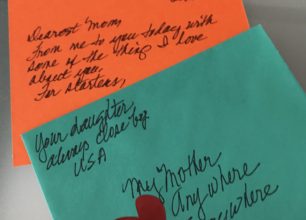 Dearest Mom,
From me to you today with
some of the thing I love
about you.
For starters,
Your daughter,
always close by
USA
My Mother,
Anywhere
Everywhere